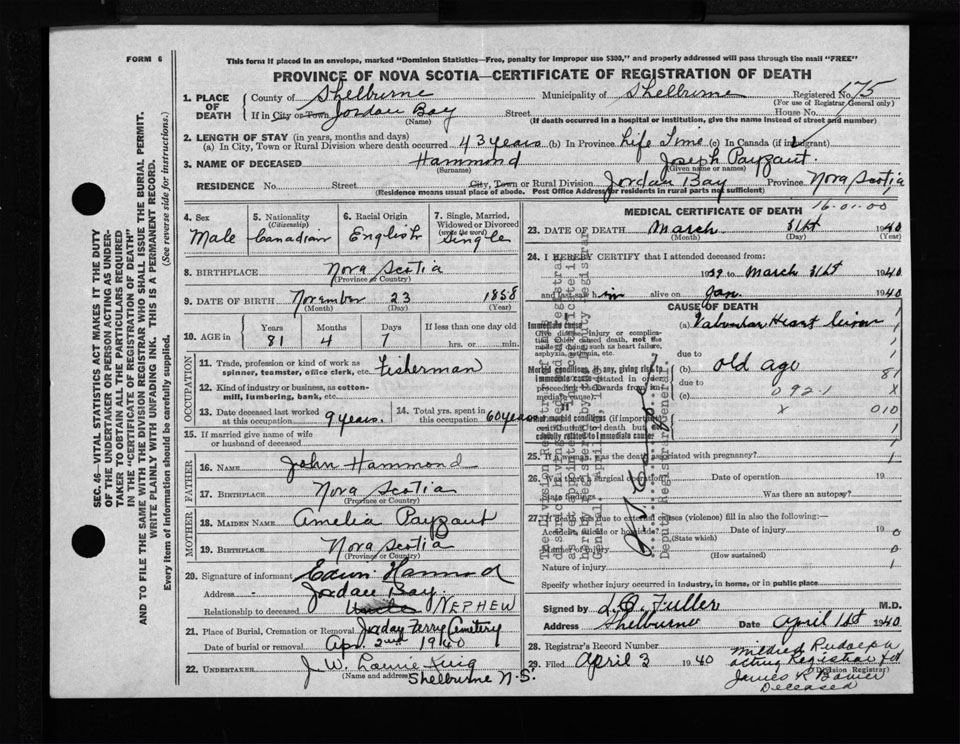 FORM 6
This form if placed in an envelope, marked "Dominion Statistics—Free, penalty for improper use $300," and properly addressed will pass through the mail "FREE"
PROVINCE OF NOVA SCOTIA—CERTIFICATE OF REGISTRATION OF DEATH
SEC. 46—VITAL STATISTICS ACT MAKES IT THE DUTY
OF THE UNDERTAKER OR PERSON ACTING AS UNDER-
TAKER TO OBTAIN ALL THE PARTICULARS REQUIRED
IN THE "CERTIFICATE OF REGISTRATION OF DEATH"
AND TO FILE THE SAME WITH THE DIVISION REGISTRAR WHO SHALL ISSUE THE BURIAL PERMIT.
WRITE PLAINLY WITH UNFADING INK. THIS IS A PERMANENT RECORD.
Every item of information should be carefully supplied. (See reverse side for instructions.)
1. PLACE OF DEATH County of Shelburne Municipality of Shelburne Registered No. 175
(For use of Registrar General only)
If in City or Town Jordan Bay Street House No.
(Name) (If death occurred in a hospital or institution, give the name instead of street and number)
2. LENGTH OF STAY (in years, months and days)
(a) In City, Town or Rural Division where death occurred 43 years (b) In Province Life Time (c) In Canada (if immigrant)
3. NAME OF DECEASED Hammond Joseph Payzant.
(Surname) (Given name or names)
RESIDENCE No. Street City, Town or Rural Division Jordan Bay Province Nova Scotia
(Residence means usual place of abode. Post Office Address for residents in rural parts not sufficient)
4. Sex Male
5. Nationality (Citizenship) Canadian
6. Racial Origin English
7. Single, Married, Widowed or Divorced (write the word) Single
8. BIRTHPLACE Nova Scotia
(Province or Country)
9. DATE OF BIRTH November 23 1858
(Month) (Day) (Year)
10. AGE in Years Months Days If less than one day old
81 4 7 hrs. or min.
OCCUPATION
11. Trade, profession or kind of work as spinner, teamster, office clerk, etc. Fisherman
12. Kind of industry or business, as cotton-mill, lumbering, bank, etc.
13. Date deceased last worked at this occupation 9 years.
14. Total yrs. spent in this occupation 60 years
15. If married give name of wife or husband of deceased
FATHER
16. NAME John Hammond
17. BIRTHPLACE Nova Scotia
(Province or Country)
MOTHER
18. MAIDEN NAME Amelia Payzant
19. BIRTHPLACE Nova Scotia
(Province or Country)
20. Signature of informant Edwin Hammond
Address Jordan Bay.
Relationship to deceased Uncle NEPHEW
21. Place of Burial, Cremation or Removal Jorday Farry Cemetery
Date of burial or removal Apr. 2nd 1940
22. UNDERTAKER J. W. Lawrie King
(Name and address) Shelburne N.S.
MEDICAL CERTIFICATE OF DEATH 16-01-00
23. DATE OF DEATH March 31st 1940
(Month) (Day) (Year)
24. I HEREBY CERTIFY that I attended deceased from:
1939 to March 31st 1940
and last saw him alive on Jan. 1940
CAUSE OF DEATH
Immediate cause (a) Valvular Heart lesion
Give disease, injury or complication which caused death, not the mode of dying such as heart failure, asphyxia, asthenia, etc.
due to
Morbid conditions, if any, giving rise to immediate cause (stated in order proceeding backwards from immediate cause) (b) old age 81
due to
(c) 092.1 X
X 010
II
Other morbid conditions (if important) contributing to death but not causally related to immediate cause
25. If a woman, was the death associated with pregnancy?
26. Was there a surgical operation? Date of operation 19
State findings Was there an autopsy?
27. If death due to external causes (violence) fill in also the following:—
Accident, suicide or homicide? Date of injury 19
(State which)
Manner of injury
(How sustained)
Nature of injury
Specify whether injury occurred in industry, in home, or in public place
Signed by L. O. Fuller M.D.
Address Shelburne Date April 1st 1940
28. Registrar's Record Number
29. Filed April 3 1940 Mildred Rudolph
acting Registrar for
(Division Registrar)
James R Bower
Deceased
Deputy Registrar General.